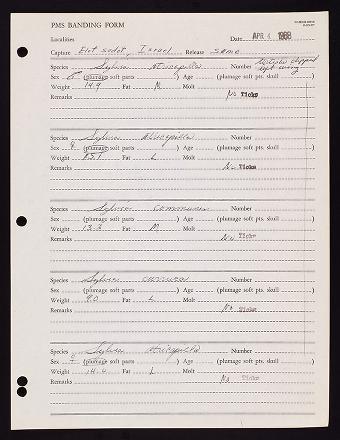 PMS BANDING FORM
Localities Date APR 4 1968
Capture Elot sadot, Israel Release same
Species Sylvia atricapilla Number tertials clipped left wing
Sex ♂ (plumage soft parts ) Age (plumage soft pts. skull )
Weight 14.9 Fat M Molt
Remarks No Ticks
Species Sylvia atricapilla Number
Sex ♀ (plumage soft parts ) Age (plumage soft pts. skull )
Weight Fat L Molt
Remarks No Ticks
Species Sylvia communis Number
Sex (plumage soft parts ) Age (plumage soft pts. skull )
Weight 13.3 Fat M Molt
Remarks No Ticks
Species Sylvia curruca Number
Sex (plumage soft parts ) Age (plumage soft pts. skull )
Weight 9.0 Fat L Molt
Remarks No Ticks
Species Sylvia atricapilla Number
Sex ♀ (plumage soft parts ) Age (plumage soft pts. skull )
Weight Fat L Molt
Remarks No Ticks